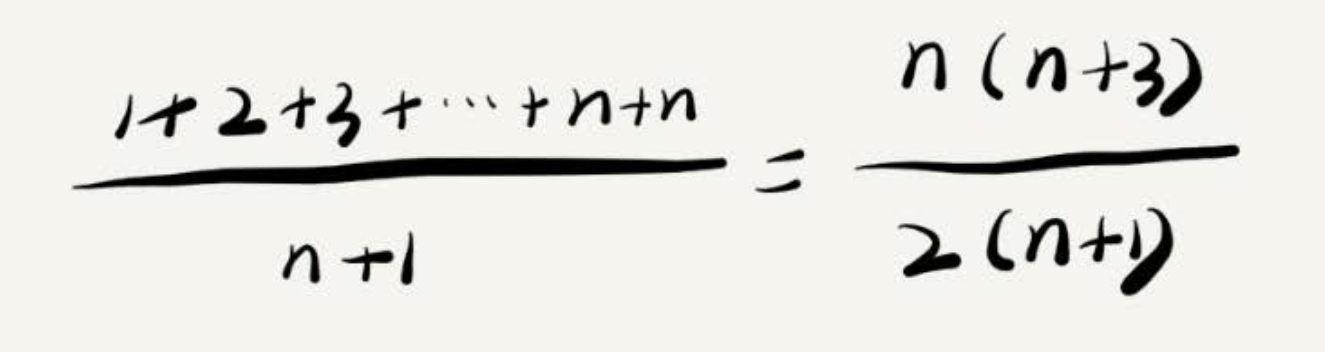 (1+2+3+⋯+n+n)/(n+1) = n(n+3)/(2(n+1))